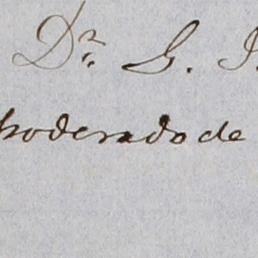 Dr. G.
poderado de